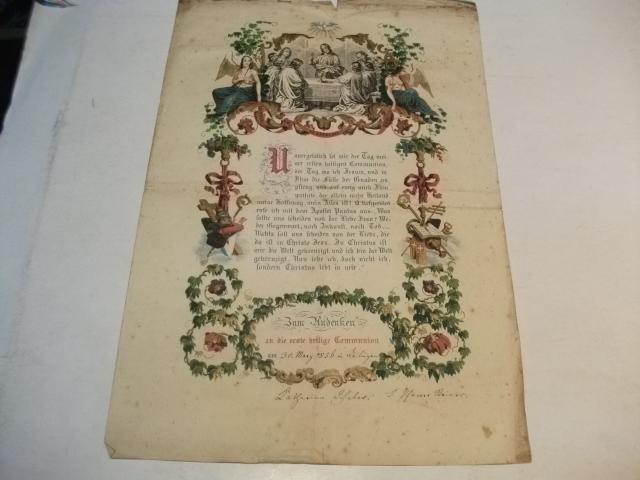 Unvergeßlich ist mir der Tag mei-
ner ersten heiligen Communion,
der Tag wo ich Jesum, und in
Ihm die Fülle der Gnaden em-
pfieng, und auf ewig mich Ihm
der allein mein Heiland
meine Hoffnung, mein Alles ist!
rufe ich mit dem Apostel Paulus aus: „Was
sollte uns scheiden von der Liebe Jesu? We-
der Gegenwart, noch Zukunft, noch Tod...
Nichts soll uns scheiden von der Liebe, die
da ist in Christo Jesu. In Christus ist
mir die Welt gekreuzigt, und ich bin der Welt
gekreuzigt. Nun lebe ich, doch nicht ich,
sondern Christus lebt in mir."
Zum Andenken
an die erste heilige Communion
am 30. März 1856 in
Katharina